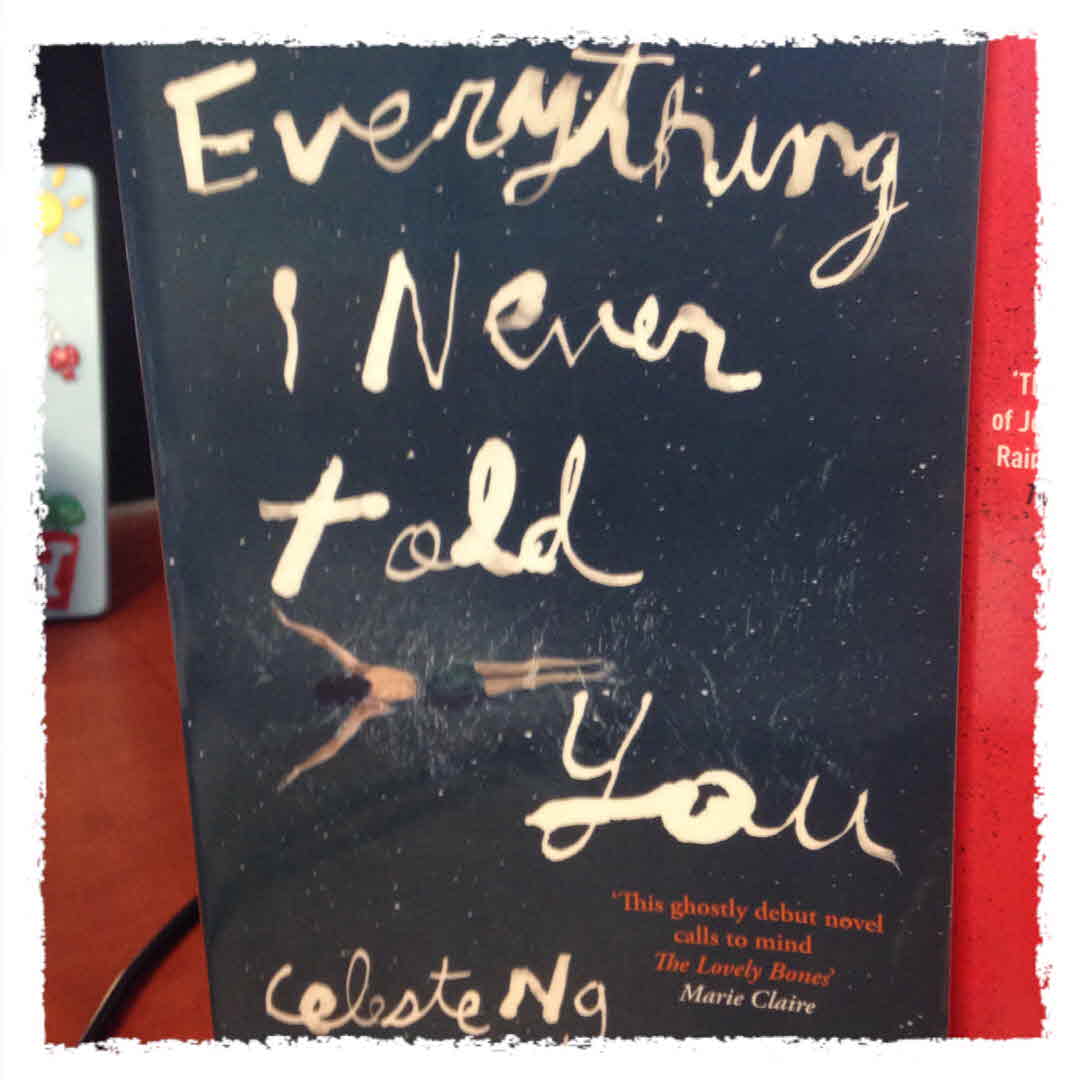 Everything
I Never
told
You
Celeste Ng
‘This ghostly debut novel
calls to mind
The Lovely Bones’
Marie Claire
of